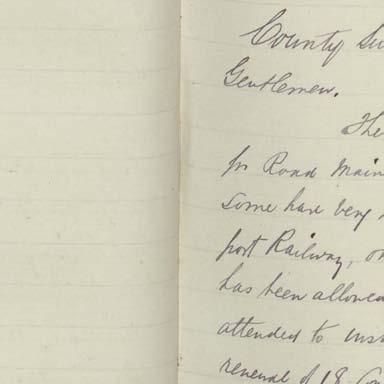 County Su
Gentlemen.
The
for Road Main
some have very
port Railway, on
has been allowed
attended to insu
renewal of 18 Co